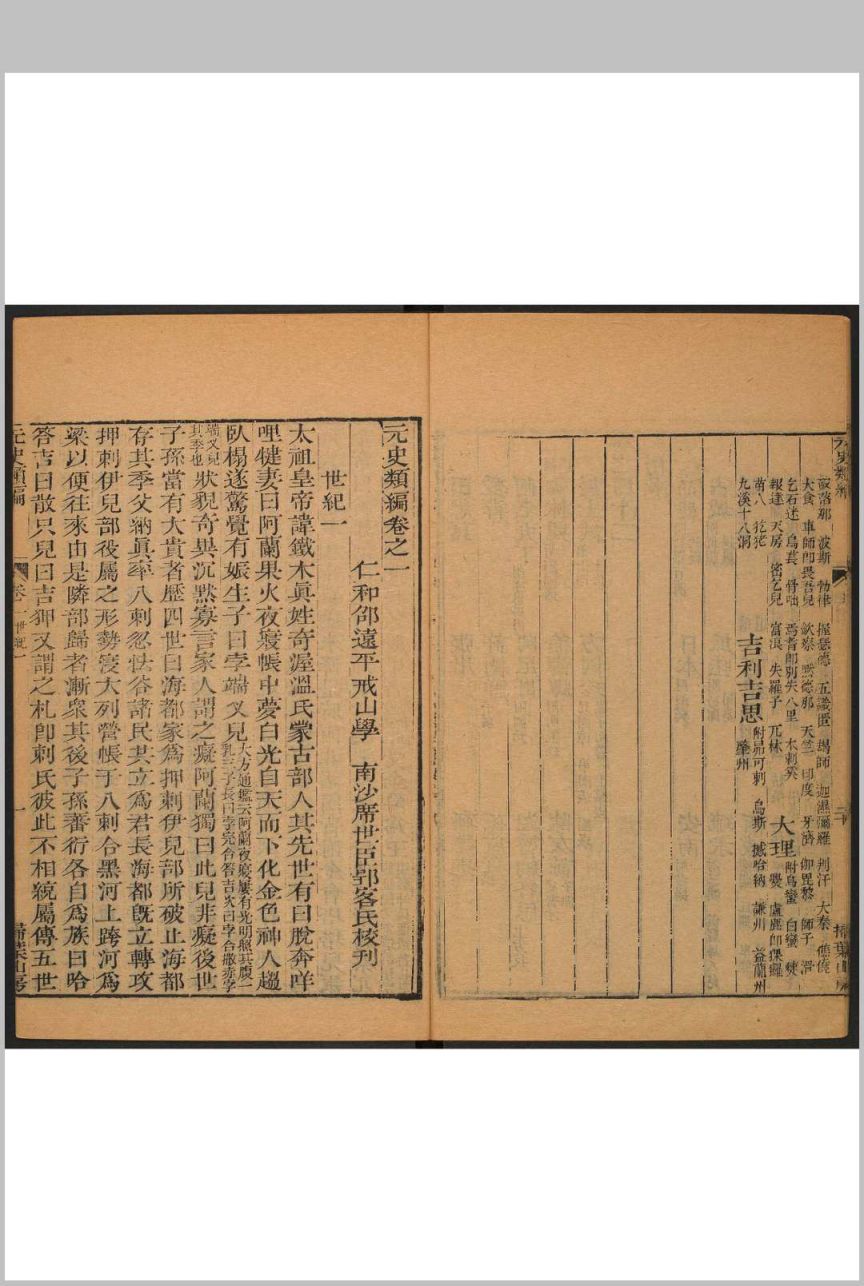 元史類編
波斯 勃律
大食 車師即畏吾兒 欽察 天竺 印度 師子
乞石迷 烏萇 骨咄
報達 天房 富浪
苗八 犵狫
九溪十八洞
吉利吉思
附昂可剌 烏斯 撼哈納 謙州 益蘭州
大理
附烏蠻 白蠻
掃葉山房
元史類編卷之一
仁和邵遠平戒山學 南沙席世臣郢客氏校刊
世紀一
太祖皇帝諱鐵木眞姓奇渥溫氏蒙古部人其先世有曰脫奔咩
哩犍妻曰阿蘭果火夜寢帳中夢白光自天而下化金色神人趨
臥榻遂驚覺有娠生子曰孛端叉兒
大方通鑑云阿蘭夜寢屢有光明照其腹一
乳三子長曰孛完合答吉次曰孛合撒赤孛
端叉兒
其季也
狀貌奇異沉默寡言家人謂之癡阿蘭獨曰此兒非癡後世
子孫當有大貴者歷四世曰海都家爲押剌伊兒部所破止海都
存其季父納眞率八剌忽怯谷諸民共立爲君長海都旣立轉攻
押剌伊兒部役屬之形勢寖大列營帳于八剌合黑河上跨河爲
梁以便往來由是隣部歸者漸衆其後子孫蕃衍各自爲族曰哈
答吉曰散只兒曰吉狎又謂之札卽剌氏彼此不相統屬傳五世
元史類編
卷一 世紀一
一
掃葉山房